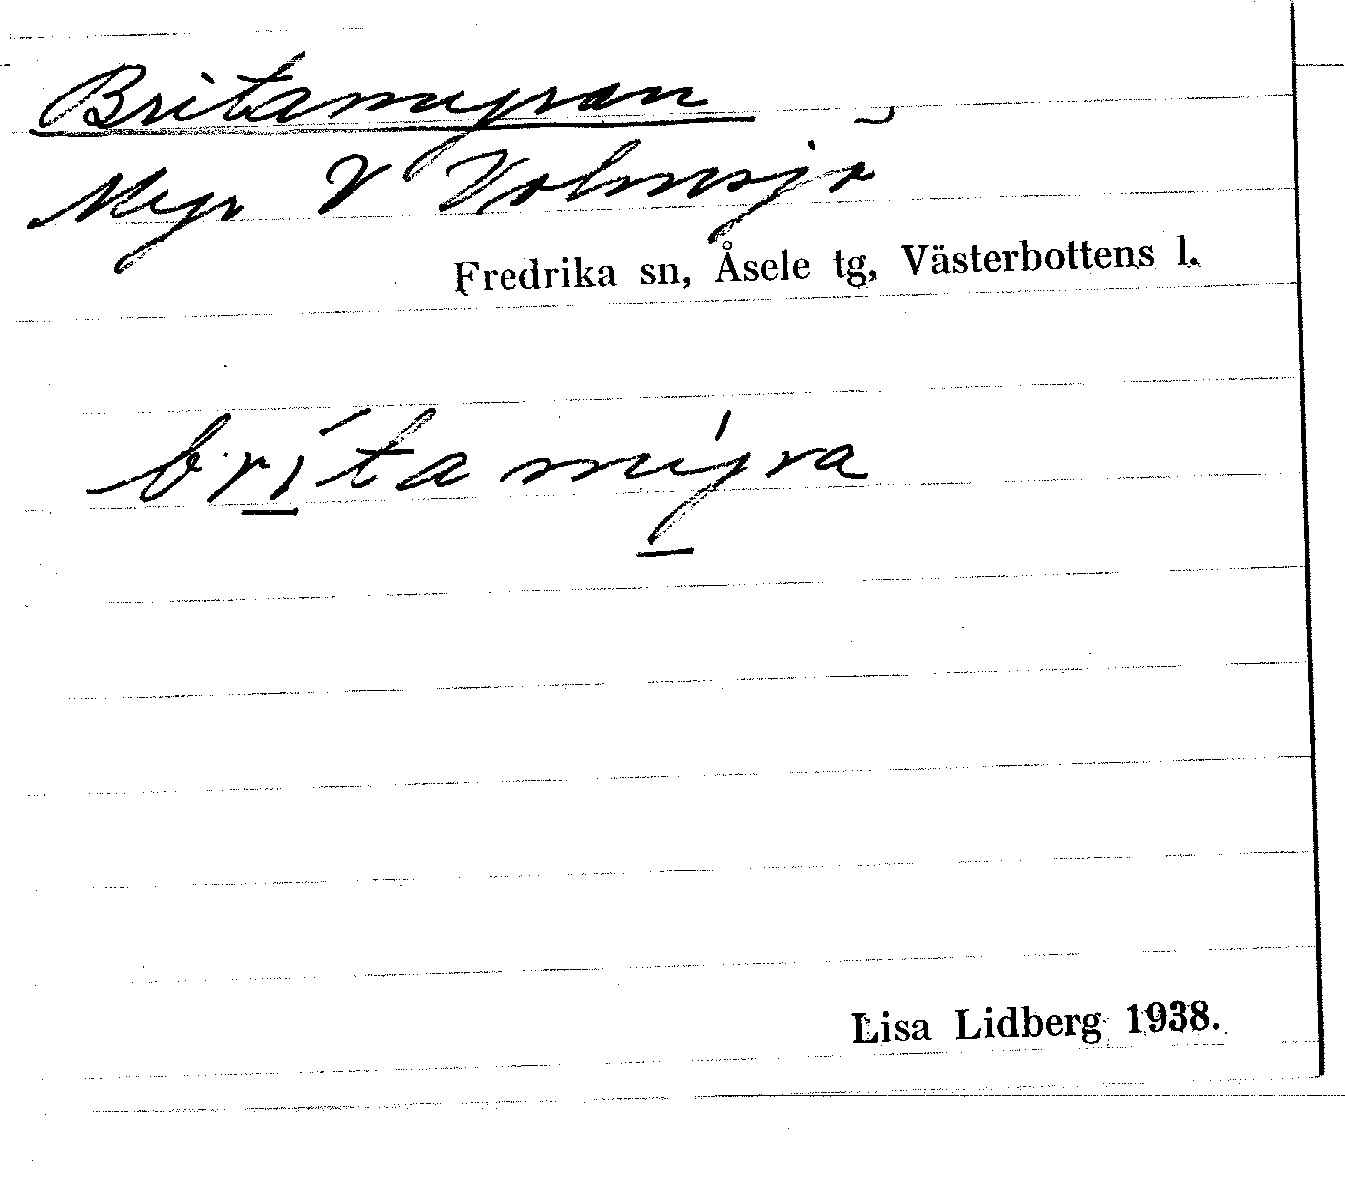 Britamyran
Myr V Volmsjö
Fredrika sn, Åsele tg, Västerbottens l.
britamy̍ra
Lisa Lidberg 1938.